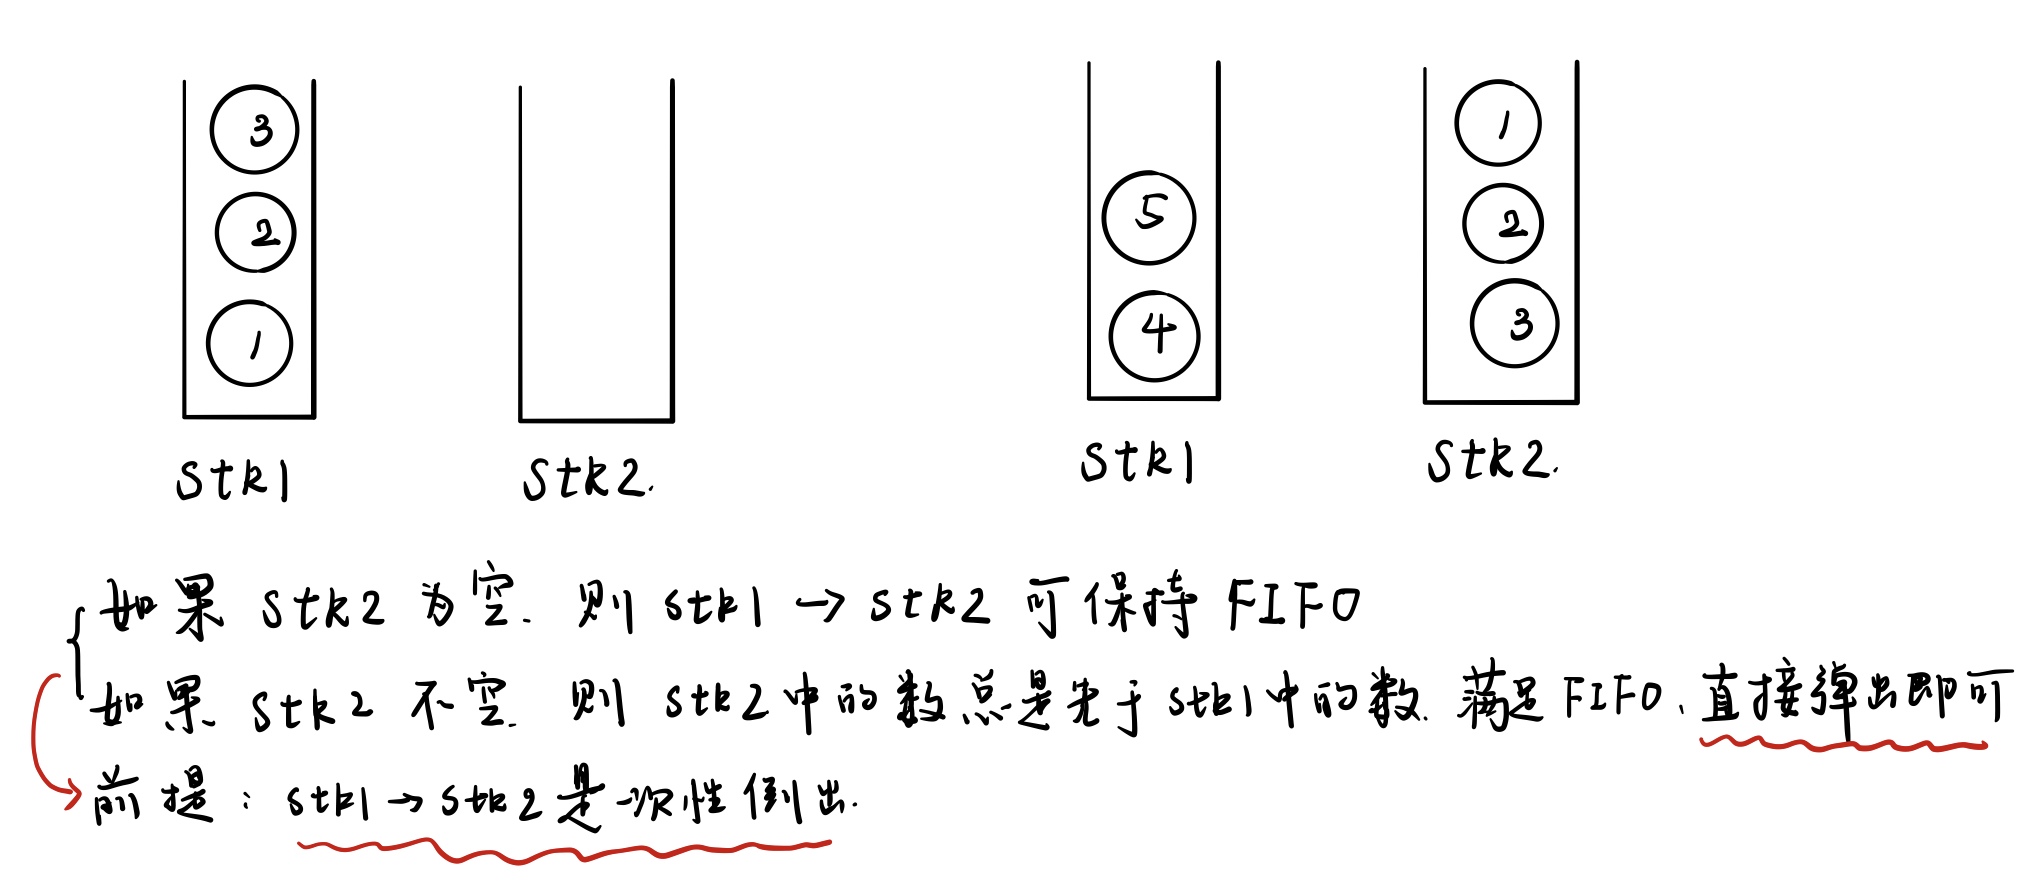 3
2
1
5
4
1
2
3
stk1
stk2.
stk1
stk2.
如果 stk2 为空. 则 stk1 → stk2 可保持 FIFO
如果 stk2 不空. 则 stk2中的数总是先于stk1中的数. 满足FIFO、直接弹出即可
前提: stk1→stk2是一次性倒出.